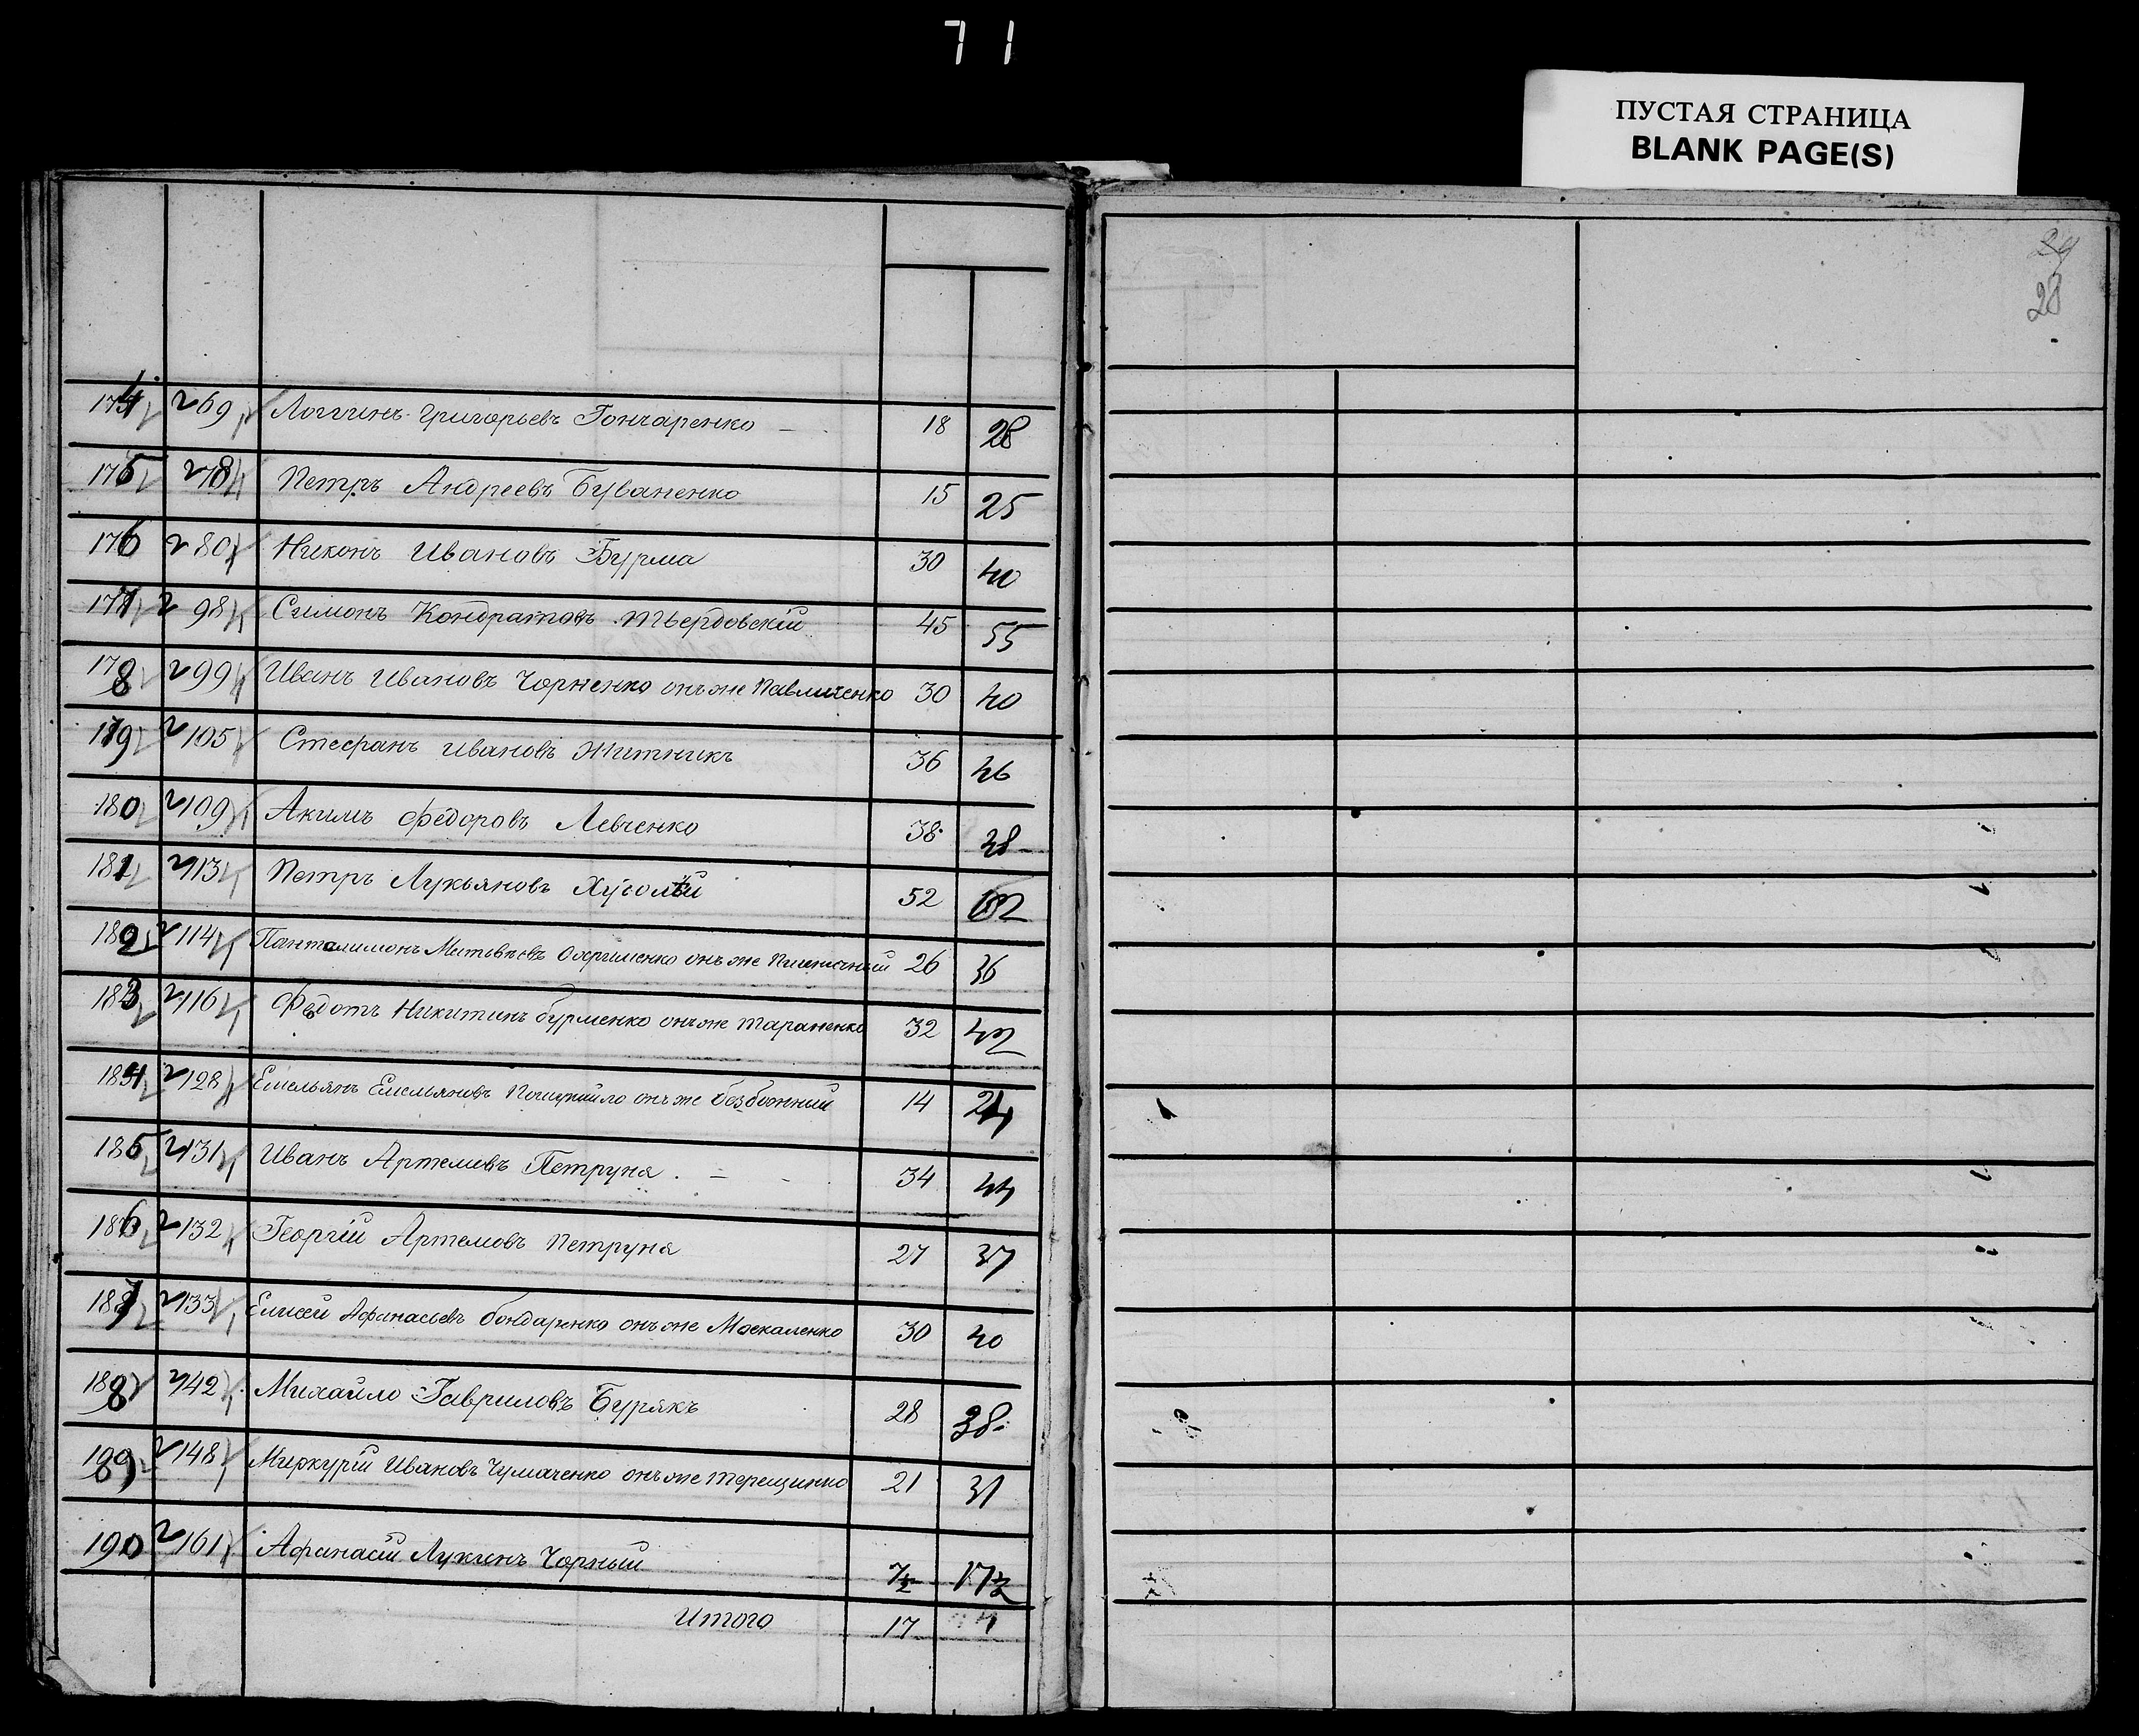 71
ПУСТАЯ СТРАНИЦА
BLANK PAGE(S)
29
28
174 69 Логгинъ Григорьевъ Гончаренко — 18 28
175 78 Петръ Андреевъ Буваненко 15 25
176 80 Никонъ Ивановъ Бурма 30 40
177 98 Симонъ Кондратовъ Твердовскій 45 55
178 99 Иванъ Ивановъ Чорненко онъ же Павличенко 30 40
179 105 Стефанъ Ивановъ Житникъ 36 46
180 109 Акимъ Федоровъ Левченко 38 48
181 113 Петръ Лукьяновъ 52 62
182 114 Пантелимонъ Матвѣевъ Охрименко онъ же 26 36
183 116 Федотъ Никитинъ Бурменко онъ же Тараненко 32 42
184 128 Емельянъ Емельяновъ онъ же Безбожный 14 24
185 131 Иванъ Артемовъ Петруня 34 44
186 132 Георгій Артемовъ Петруня 27 37
187 133 Елисей Афанасьевъ Бондаренко онъ же Москаленко 30 40
188 142 Михайло Гавриловъ Бурякъ 28 38
189 148 Меркурій Ивановъ Чумаченко онъ же Терещенко 21 31
190 161 Афанасій Лукинъ Чорный 7½ 17½
Итого 17